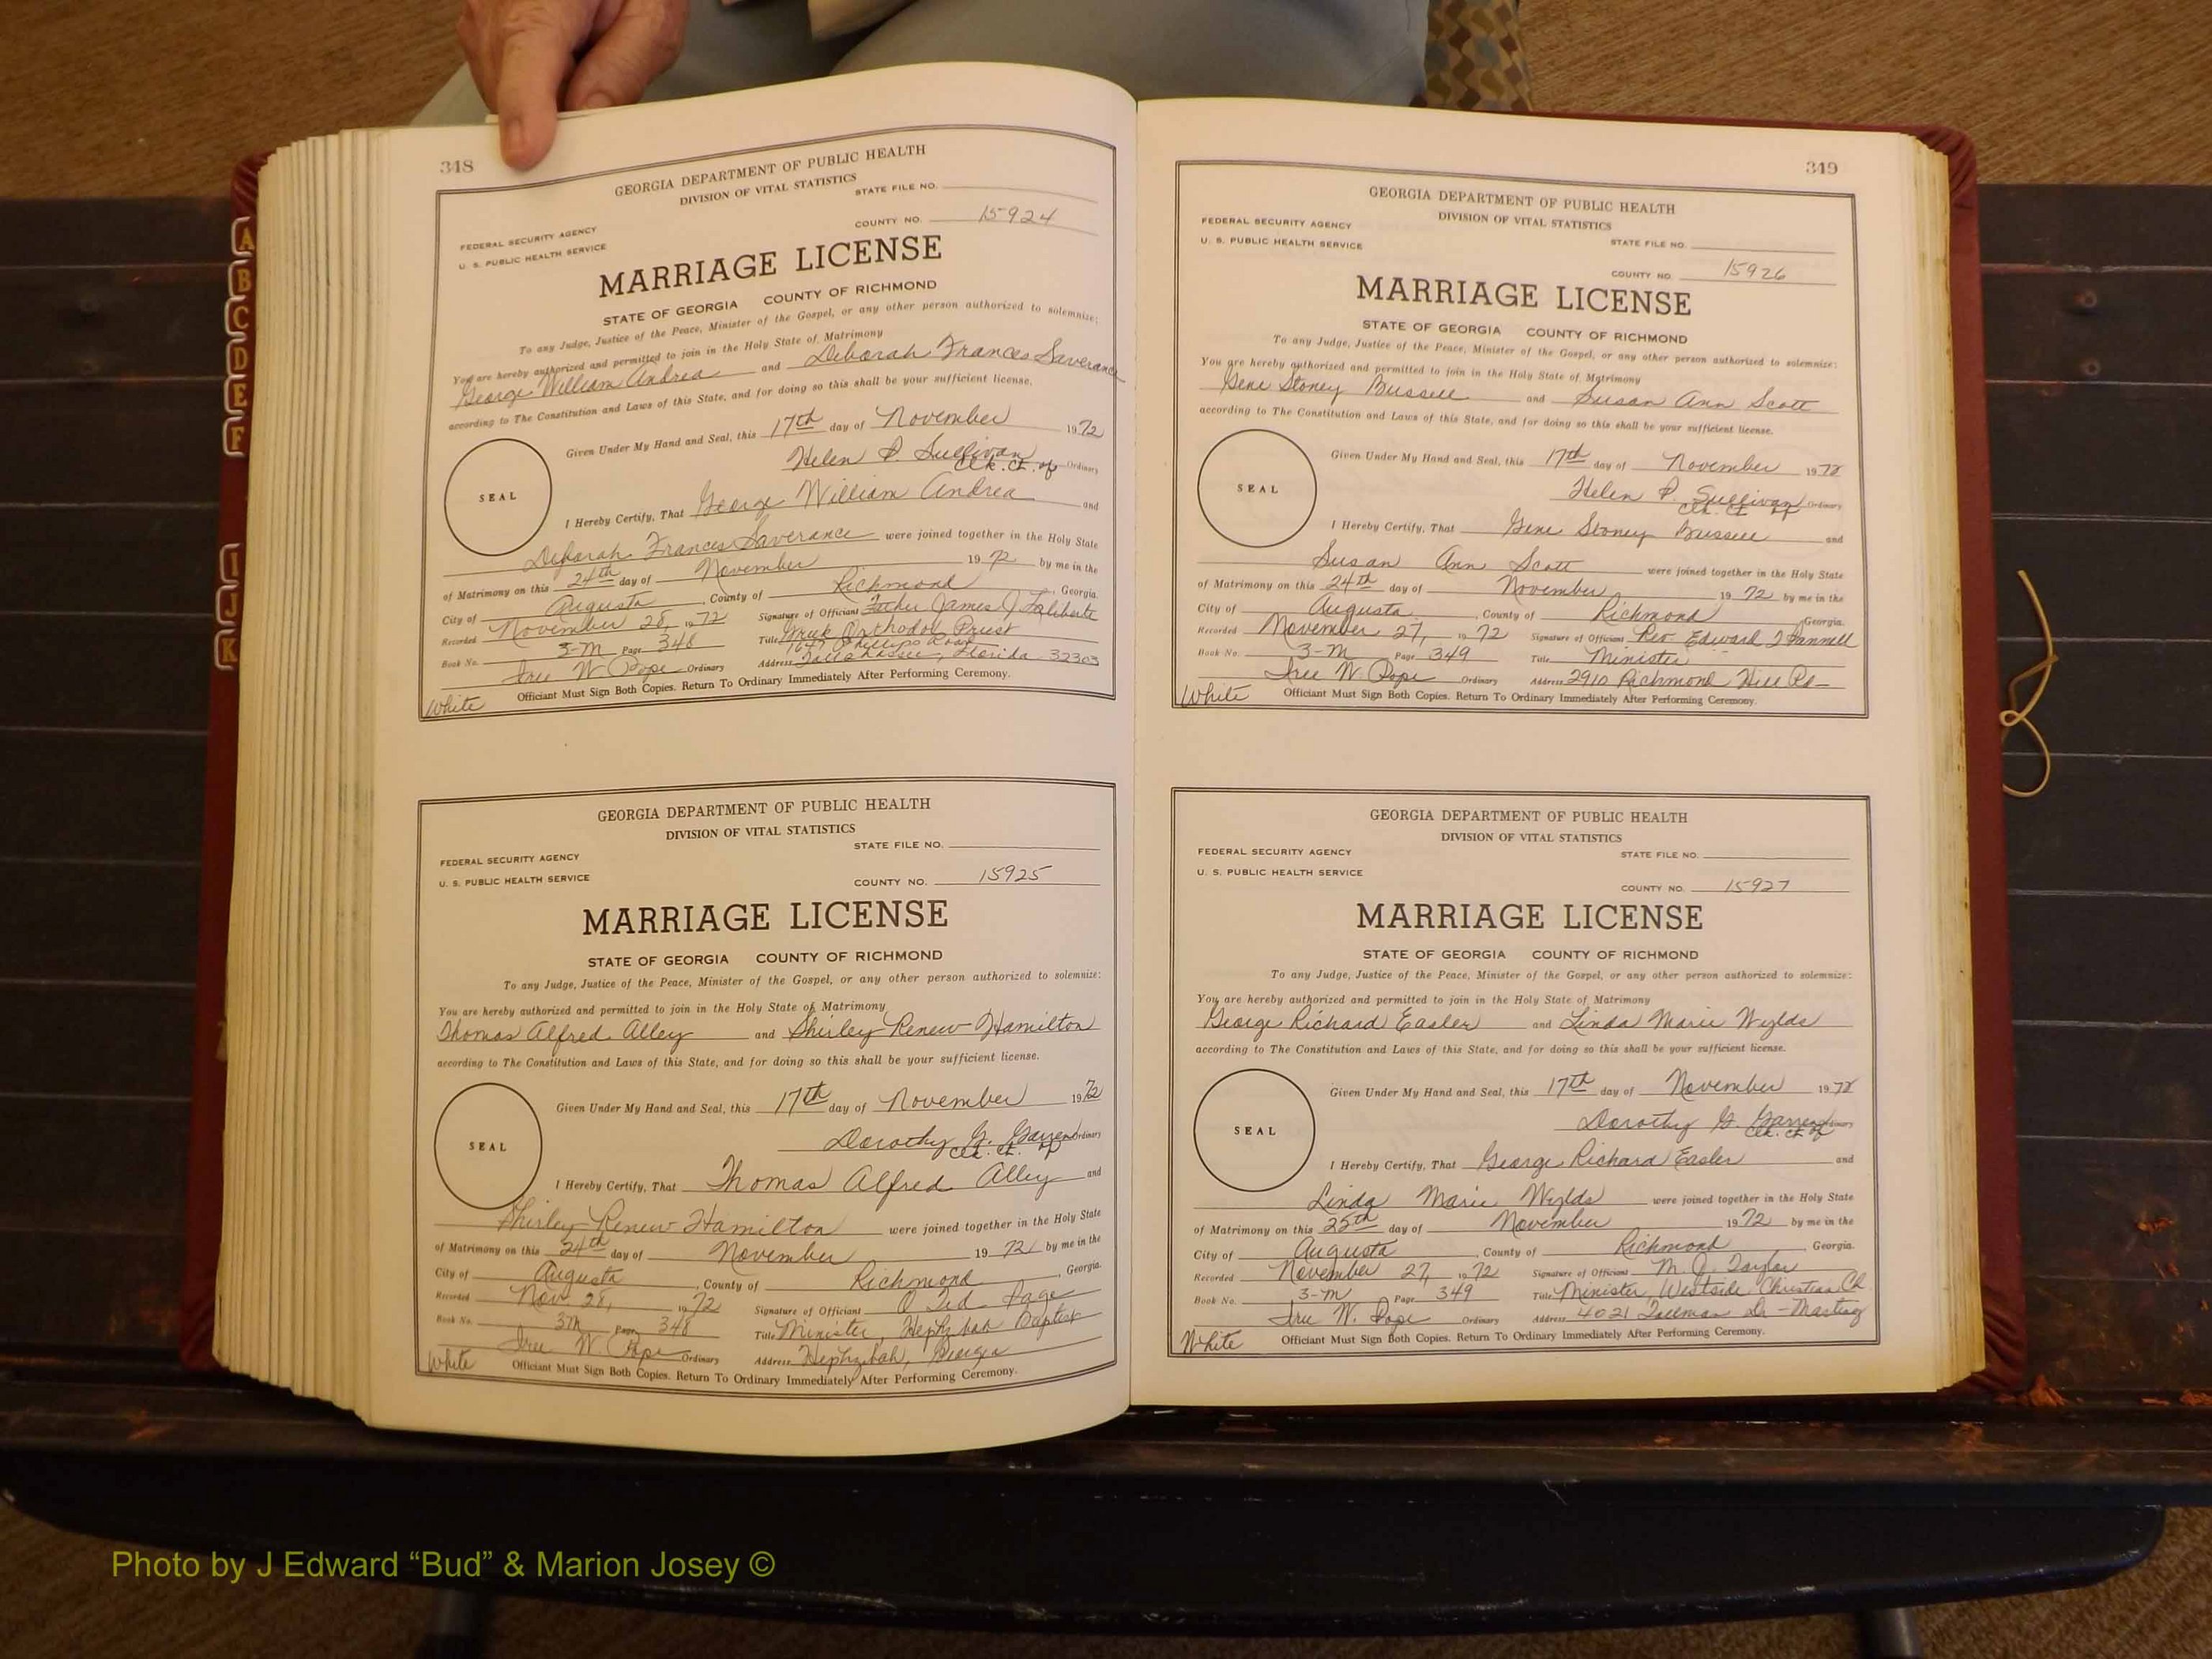 A
B
C
D
E
F
I
J
K
348
GEORGIA DEPARTMENT OF PUBLIC HEALTH
DIVISION OF VITAL STATISTICS
STATE FILE NO.
COUNTY NO. 15924
FEDERAL SECURITY AGENCY
U. S. PUBLIC HEALTH SERVICE
MARRIAGE LICENSE
STATE OF GEORGIA COUNTY OF RICHMOND
To any Judge, Justice of the Peace, Minister of the Gospel, or any other person authorized to solemnize:
You are hereby authorized and permitted to join in the Holy State of Matrimony
George William Andrea and Deborah Frances Saverance
according to The Constitution and Laws of this State, and for doing so this shall be your sufficient license.
Given Under My Hand and Seal, this 17th day of November 1972
Helen P. Sullivan Ordinary
Clk. Ct. of
SEAL
I Hereby Certify, That George William Andrea and
Deborah Frances Saverance were joined together in the Holy State
of Matrimony on this 24th day of November 1972 by me in the
City of Augusta, County of Richmond, Georgia.
Recorded November 28, 1972 Signature of Officiant Father James J. Laliberte
Book No. 3-M Page 348 Title Greek Orthodox Priest
1647 Road
Address Tallahassee, Florida 32303
Ordinary
White Officiant Must Sign Both Copies. Return To Ordinary Immediately After Performing Ceremony.
GEORGIA DEPARTMENT OF PUBLIC HEALTH
DIVISION OF VITAL STATISTICS
STATE FILE NO.
FEDERAL SECURITY AGENCY
U. S. PUBLIC HEALTH SERVICE
COUNTY NO. 15925
MARRIAGE LICENSE
STATE OF GEORGIA COUNTY OF RICHMOND
To any Judge, Justice of the Peace, Minister of the Gospel, or any other person authorized to solemnize:
You are hereby authorized and permitted to join in the Holy State of Matrimony
Thomas Alfred Alley and Shirley Renew Hamilton
according to The Constitution and Laws of this State, and for doing so this shall be your sufficient license.
Given Under My Hand and Seal, this 17th day of November 1972
Dorothy G. Ordinary
Clk. Ct. of
SEAL
I Hereby Certify, That Thomas Alfred Alley and
Shirley Renew Hamilton were joined together in the Holy State
of Matrimony on this 24th day of November 1972 by me in the
City of Augusta, County of Richmond, Georgia.
Recorded Nov 28, 1972 Signature of Officiant O Ted Page
Book No. 3M Page 348 Title Minister, Hephzibah Baptist
W. Pope Ordinary Address Hephzibah, Georgia
White Officiant Must Sign Both Copies. Return To Ordinary Immediately After Performing Ceremony.
349
GEORGIA DEPARTMENT OF PUBLIC HEALTH
DIVISION OF VITAL STATISTICS
FEDERAL SECURITY AGENCY
U. S. PUBLIC HEALTH SERVICE
STATE FILE NO.
COUNTY NO. 15926
MARRIAGE LICENSE
STATE OF GEORGIA COUNTY OF RICHMOND
To any Judge, Justice of the Peace, Minister of the Gospel, or any other person authorized to solemnize:
You are hereby authorized and permitted to join in the Holy State of Matrimony
Gene Stoney Bussell and Susan Ann Scott
according to The Constitution and Laws of this State, and for doing so this shall be your sufficient license.
Given Under My Hand and Seal, this 17th day of November 1972
Helen P. Sullivan Ordinary
Clk. Ct. of
SEAL
I Hereby Certify, That Gene Stoney Bussell and
Susan Ann Scott were joined together in the Holy State
of Matrimony on this 24th day of November 1972 by me in the
City of Augusta, County of Richmond, Georgia.
Recorded November 27, 1972 Signature of Officiant Rev Edward
Book No. 3-M Page 349 Title Minister
W. Pope Ordinary Address 2910 Richmond Hill Rd
White Officiant Must Sign Both Copies. Return To Ordinary Immediately After Performing Ceremony.
GEORGIA DEPARTMENT OF PUBLIC HEALTH
DIVISION OF VITAL STATISTICS
FEDERAL SECURITY AGENCY
STATE FILE NO.
U. S. PUBLIC HEALTH SERVICE
COUNTY NO. 15927
MARRIAGE LICENSE
STATE OF GEORGIA COUNTY OF RICHMOND
To any Judge, Justice of the Peace, Minister of the Gospel, or any other person authorized to solemnize:
You are hereby authorized and permitted to join in the Holy State of Matrimony
George Richard Easler and Linda Marie Wylds
according to The Constitution and Laws of this State, and for doing so this shall be your sufficient license.
Given Under My Hand and Seal, this 17th day of November 1972
Dorothy G. Ordinary
Clk. Ct. of
SEAL
I Hereby Certify, That George Richard Easler and
Linda Marie Wylds were joined together in the Holy State
of Matrimony on this 25th day of November 1972 by me in the
City of Augusta, County of Richmond, Georgia.
Recorded November 27, 1972 Signature of Officiant M. J. Taylor
Book No. 3-M Page 349 Title Minister, Westside Christian Ch.
W. Pope Ordinary Address 4021 Dr - Martinez
White Officiant Must Sign Both Copies. Return To Ordinary Immediately After Performing Ceremony.
Photo by J Edward “Bud” & Marion Josey ©